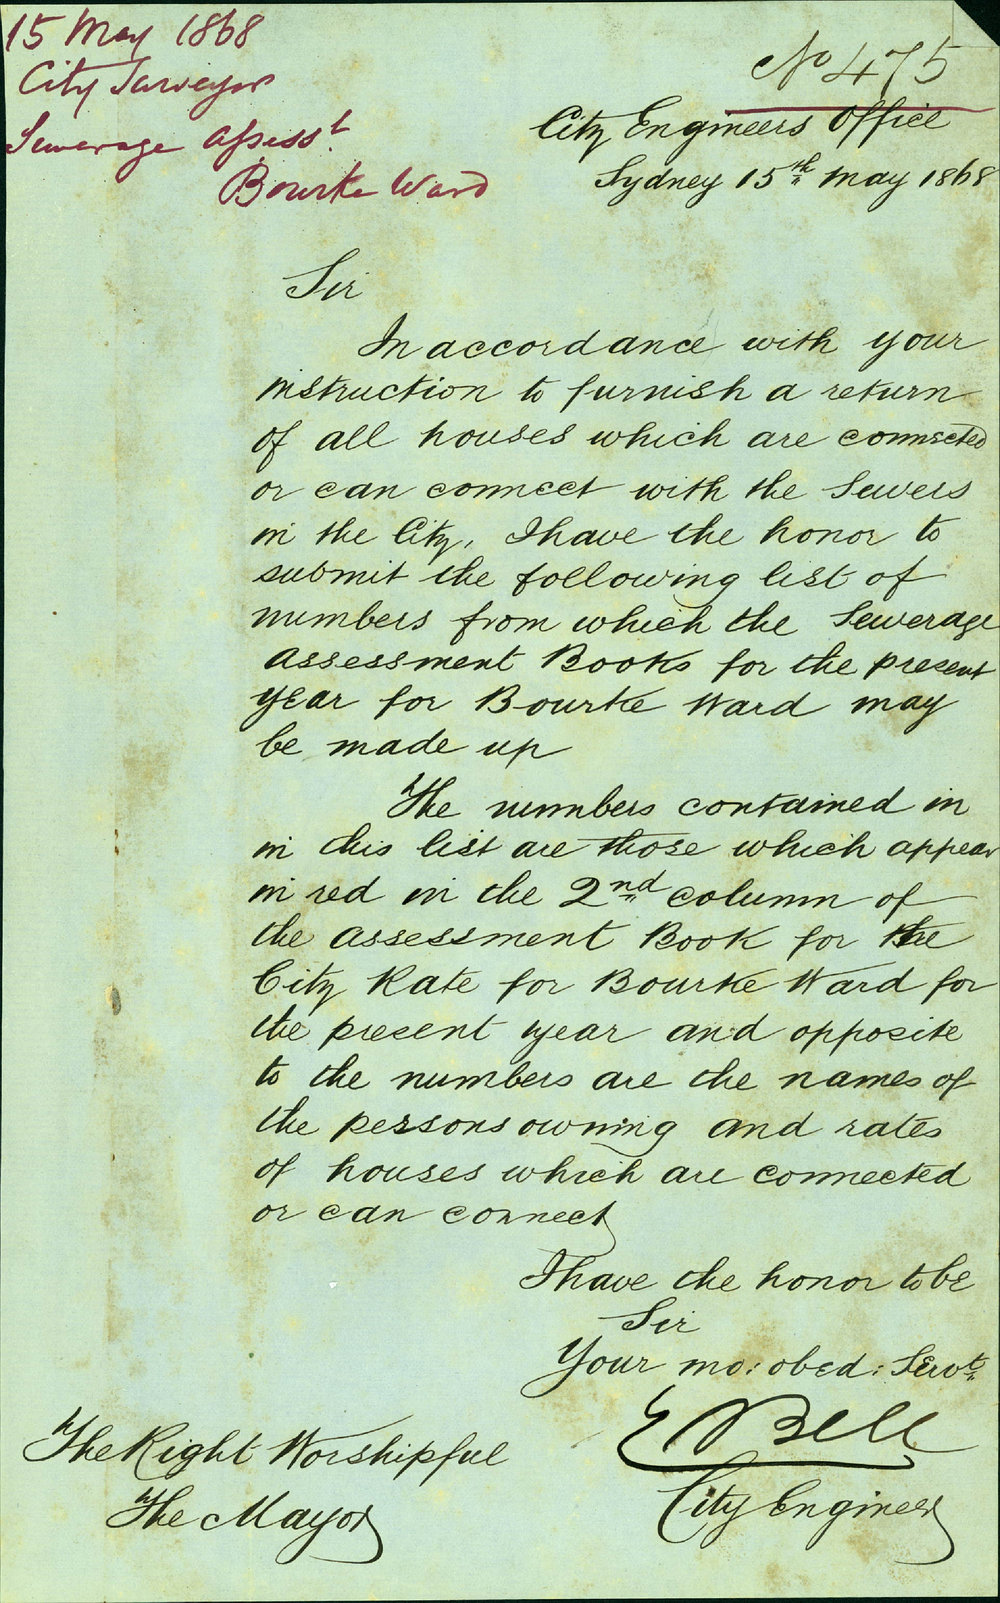 15 May 1868
City Surveyor
Sewerage Assesst.
Bourke Ward
No 475
City Engineers Office
Sydney 15th May 1868
Sir
In accordance with your
instruction to furnish a return
of all houses which are connected
or can connect with the Sewers
in the City, I have the honor to
submit the following list of
numbers from which the Sewerage
Assessment Books for the present
year for Bourke Ward may
be made up
The numbers contained in
in this list are those which appear
in red in the 2nd column of
the Assessment Book for the
City Rate for Bourke Ward for
the present year and opposite
to the numbers are the names of
the persons owning and rates
of houses which are connected
or can connect
I have the honor to be
Sir
Your mo: obed: Servt
E Bell
City Engineer
The Right Worshipful
The Mayor